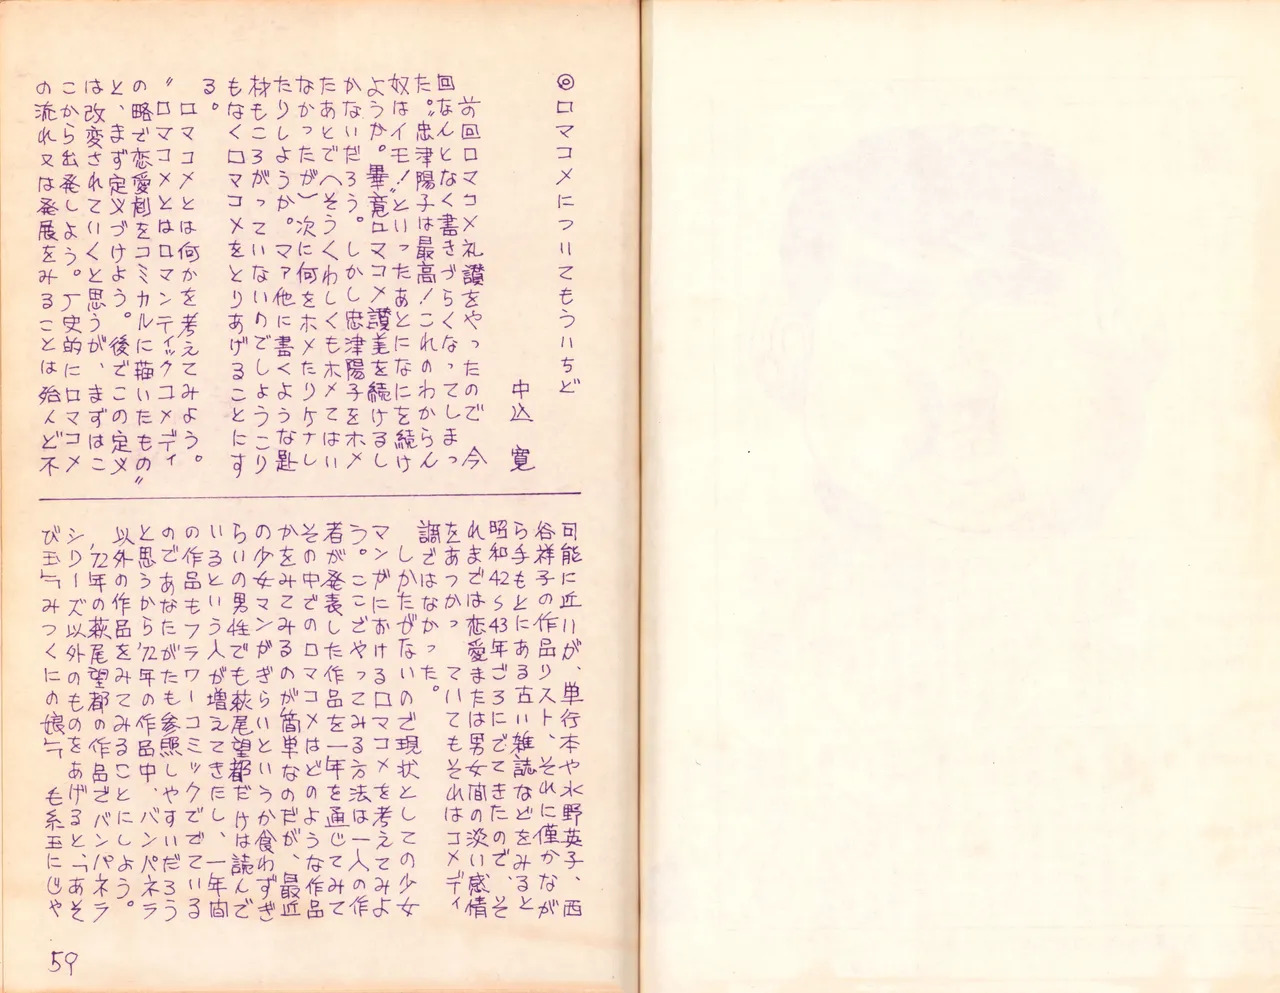 ◎ロマコメについてもういちど
中込 寛
前回ロマコメ礼讃をやったので 今
回なんとなく書きづらくなってしまっ
た。〝忠津陽子は最高！これのわからん
奴はイモ！〟といったあとになにを続け
ようか。畢竟ロマコメ讃美を続けるし
かないだろう。しかし忠津陽子をホメ
たあとで（そうくわしくもホメてはい
なかったが）次に何をホメたりケナし
たりしようか。マァ他に書くような題
材もころがっていないのでしょうこり
もなくロマコメをとりあげることにす
る。
ロマコメとは何かを考えてみよう。
〝ロマコメとはロマンティックコメディ
の略で恋愛劇をコミカルに描いたもの〟
と、まず定义づけよう。後でこの定义
は改変されていくと思うが、まずはこ
こから出発しよう。历史的にロマコメ
の流れ又は発展をみることは殆んど不
可能に近いが、単行本や水野英子、西
谷祥子の作品リスト、それに僅かなが
ら手もとにある古い雑誌などをみると
昭和42〜43年ごろにでてきたので、そ
れまでは恋愛または男女間の淡い感情
をあつかっていてもそれはコメディ
調ではなかった。
しかたがないので現状としての少女
マンガにおけるロマコメを考えてみよ
う。ここでやってみる方法は一人の作
者が発表した作品を一年を通じてみて
その中でのロマコメはどのような作品
かをみてみるのが簡単なのだが、最近
の少女マンガがぎらいというか食わずぎ
らいの男性でも萩尾望都だけは読んで
いるという人が増えてきたし、一年間
の作品もフラワーコミックででている
のであなたがたも参照しやすいだろう
と思うから'72年の作品中、バンパネラ
以外の作品をみてみることにしよう。
'72年の萩尾望都の作品でバンパネラ
シリーズ以外のものをあげると、「あそ
び玉」「みつくにの娘」「毛糸玉にじゃ
59